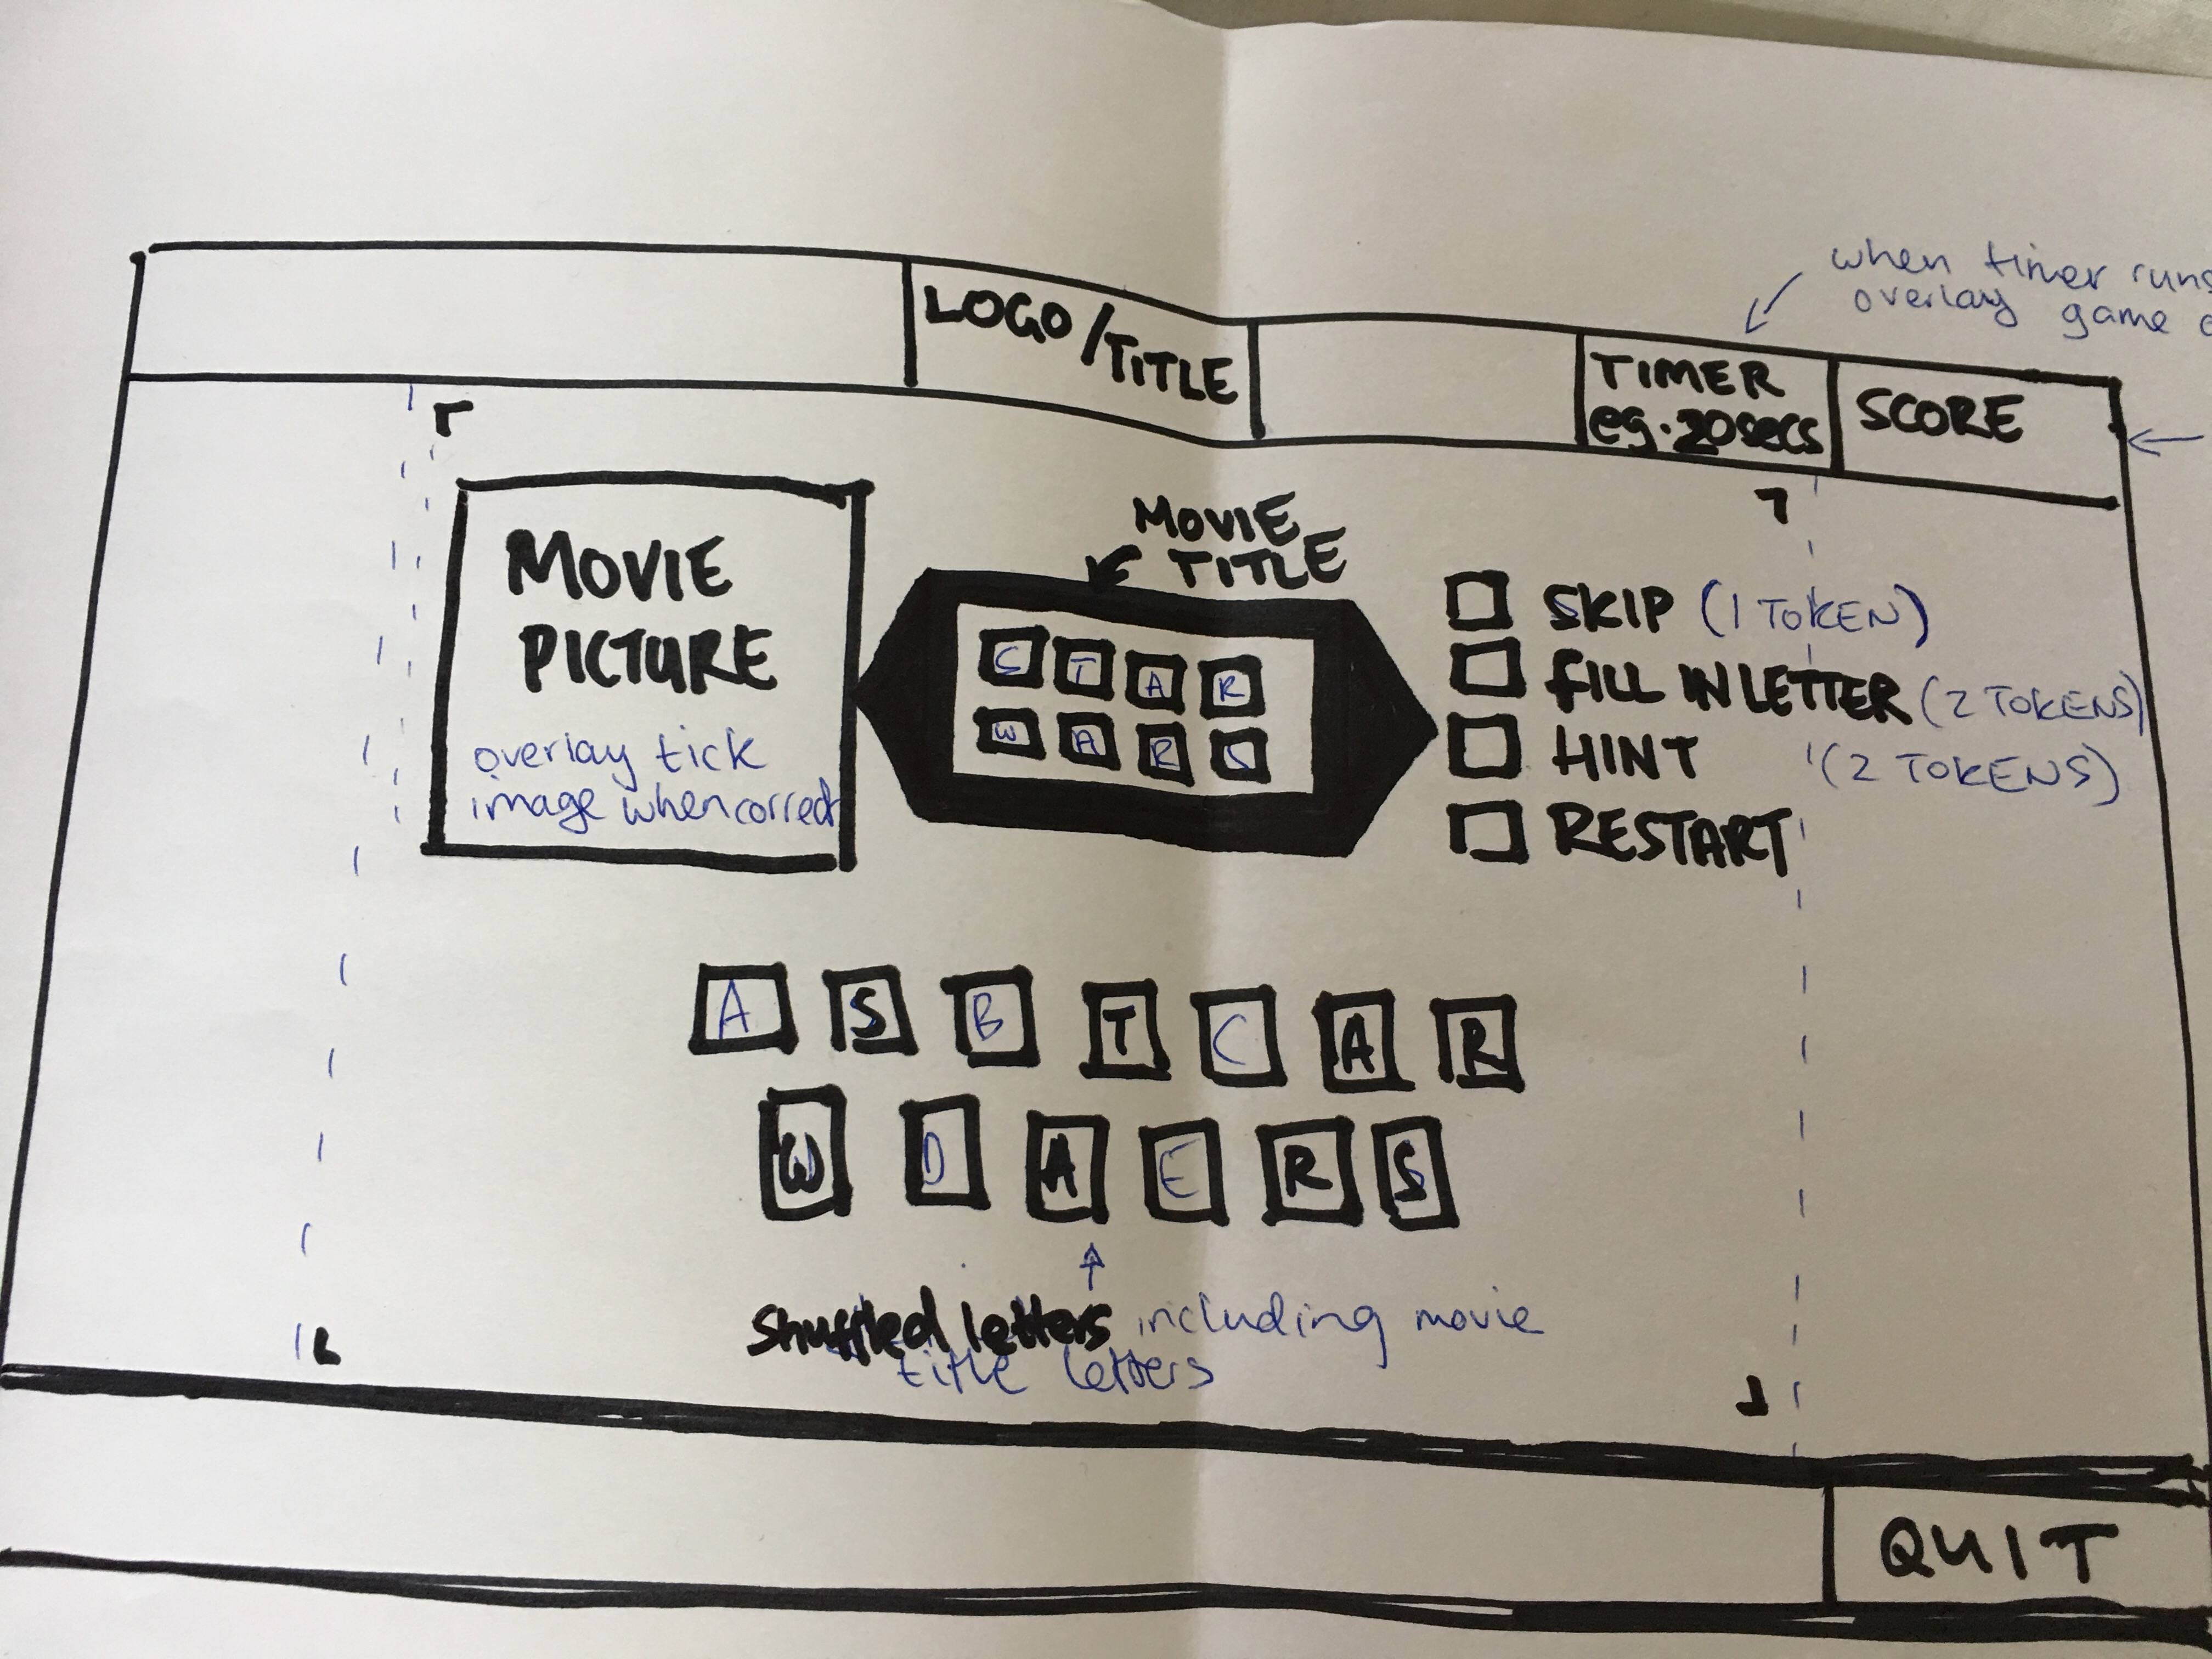 when timer runs
overlay game
LOGO/TITLE
TIMER
eg. 20secs
SCORE
MOVIE
TITLE
MOVIE
PICTURE
overlay tick
image when correct
S T A R
W A R S
SKIP (1 TOKEN)
FILL IN LETTER (2 TOKENS)
HINT (2 TOKENS)
RESTART
A S B T C A R
W D A E R S
Shuffled letters including movie
title letters
QUIT